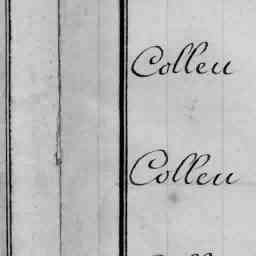 Colleu
Colleu